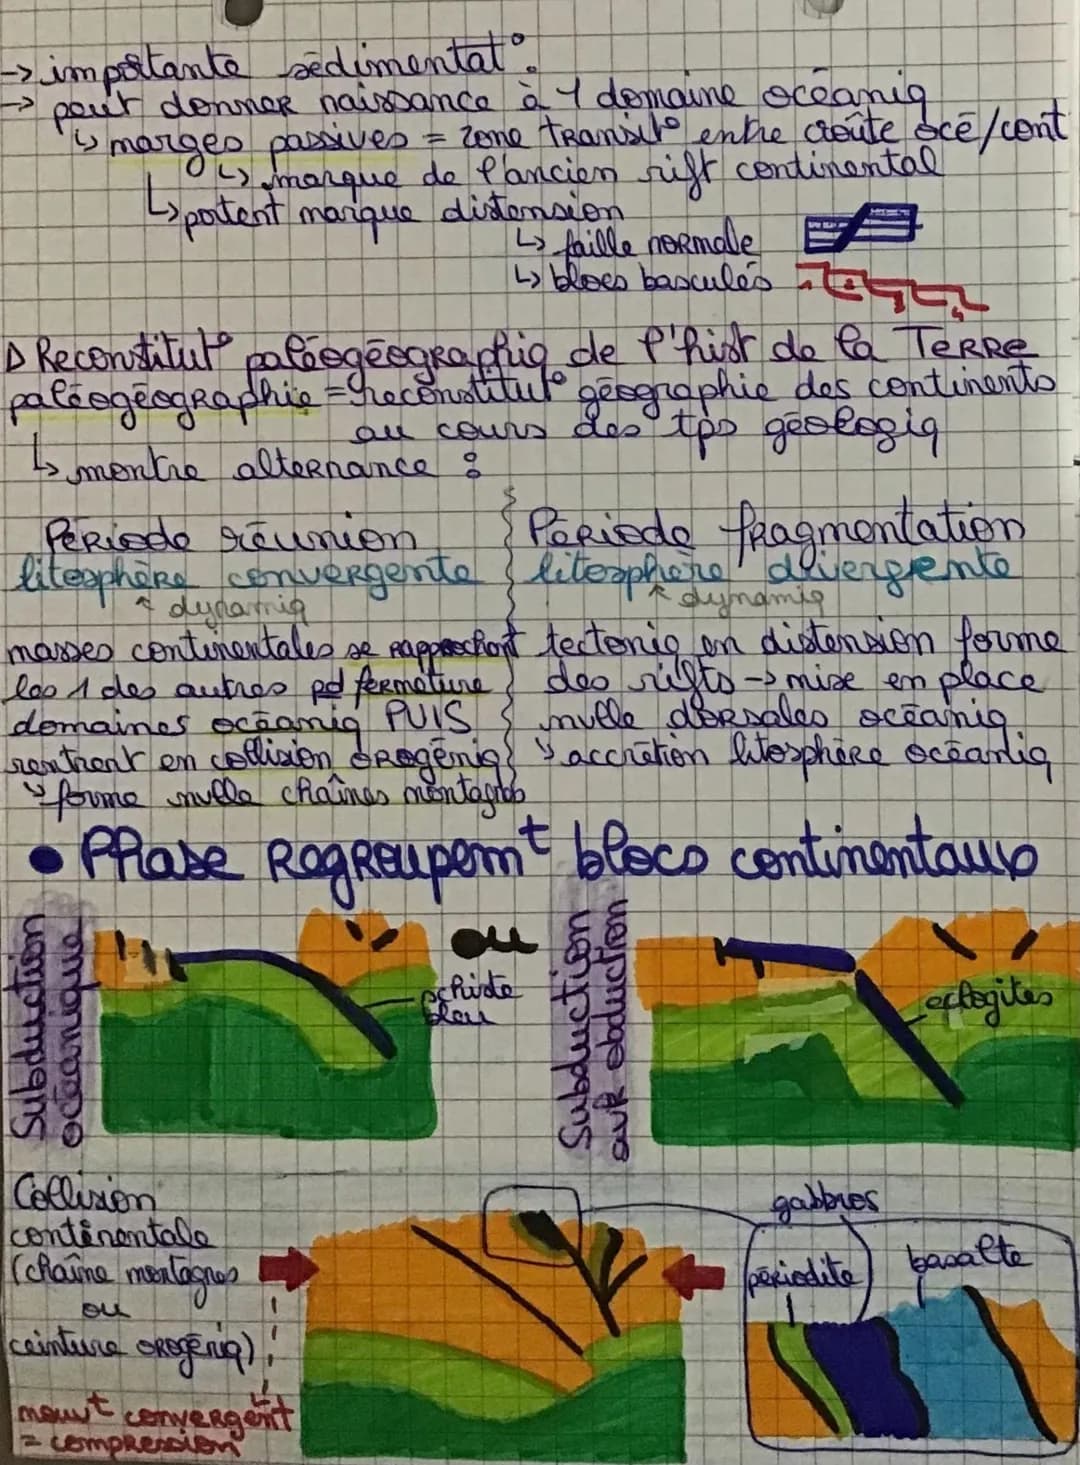 -> importante sédimentat°.
-> peut donner naissance à 1 domaine océaniq
↳ marges passives = zone transit° entre croûte océ/cont
↳ marque de l'ancien rift continental
↳ portent marque distension
↳ faille normale
↳ blocs basculés
Δ Reconstitut° paléogéographiq de l'hist de la TERRE
paléogéographie = reconstitut° géographie des continents
au cours des tps géologiq
↳ montre alternance :
Période réunion
litosphère convergente
↑ dynamiq
masses continentales se rapprochent
les 1 des autres pd fermeture
domaines océaniq PUIS
rentrent en collision orogéniq
↳ forme nvlle chaînes montagnes
Période fragmentation
litosphère divergente
↑ dynamiq
tectoniq en distension forme
des rifts -> mise en place
nvlle dorsales océaniq
↳ accrétion litosphère océaniq
• Phase Regroupem^t blocs continentaux
Subduction
océanique
schiste
bleu
ou
Subduction
avk obduction
eclogites
Collision
continentale
(chaîne montagnes
ou
ceinture orogéniq)
mouv^t convergent
= compression
gabbros
périodite
basalte